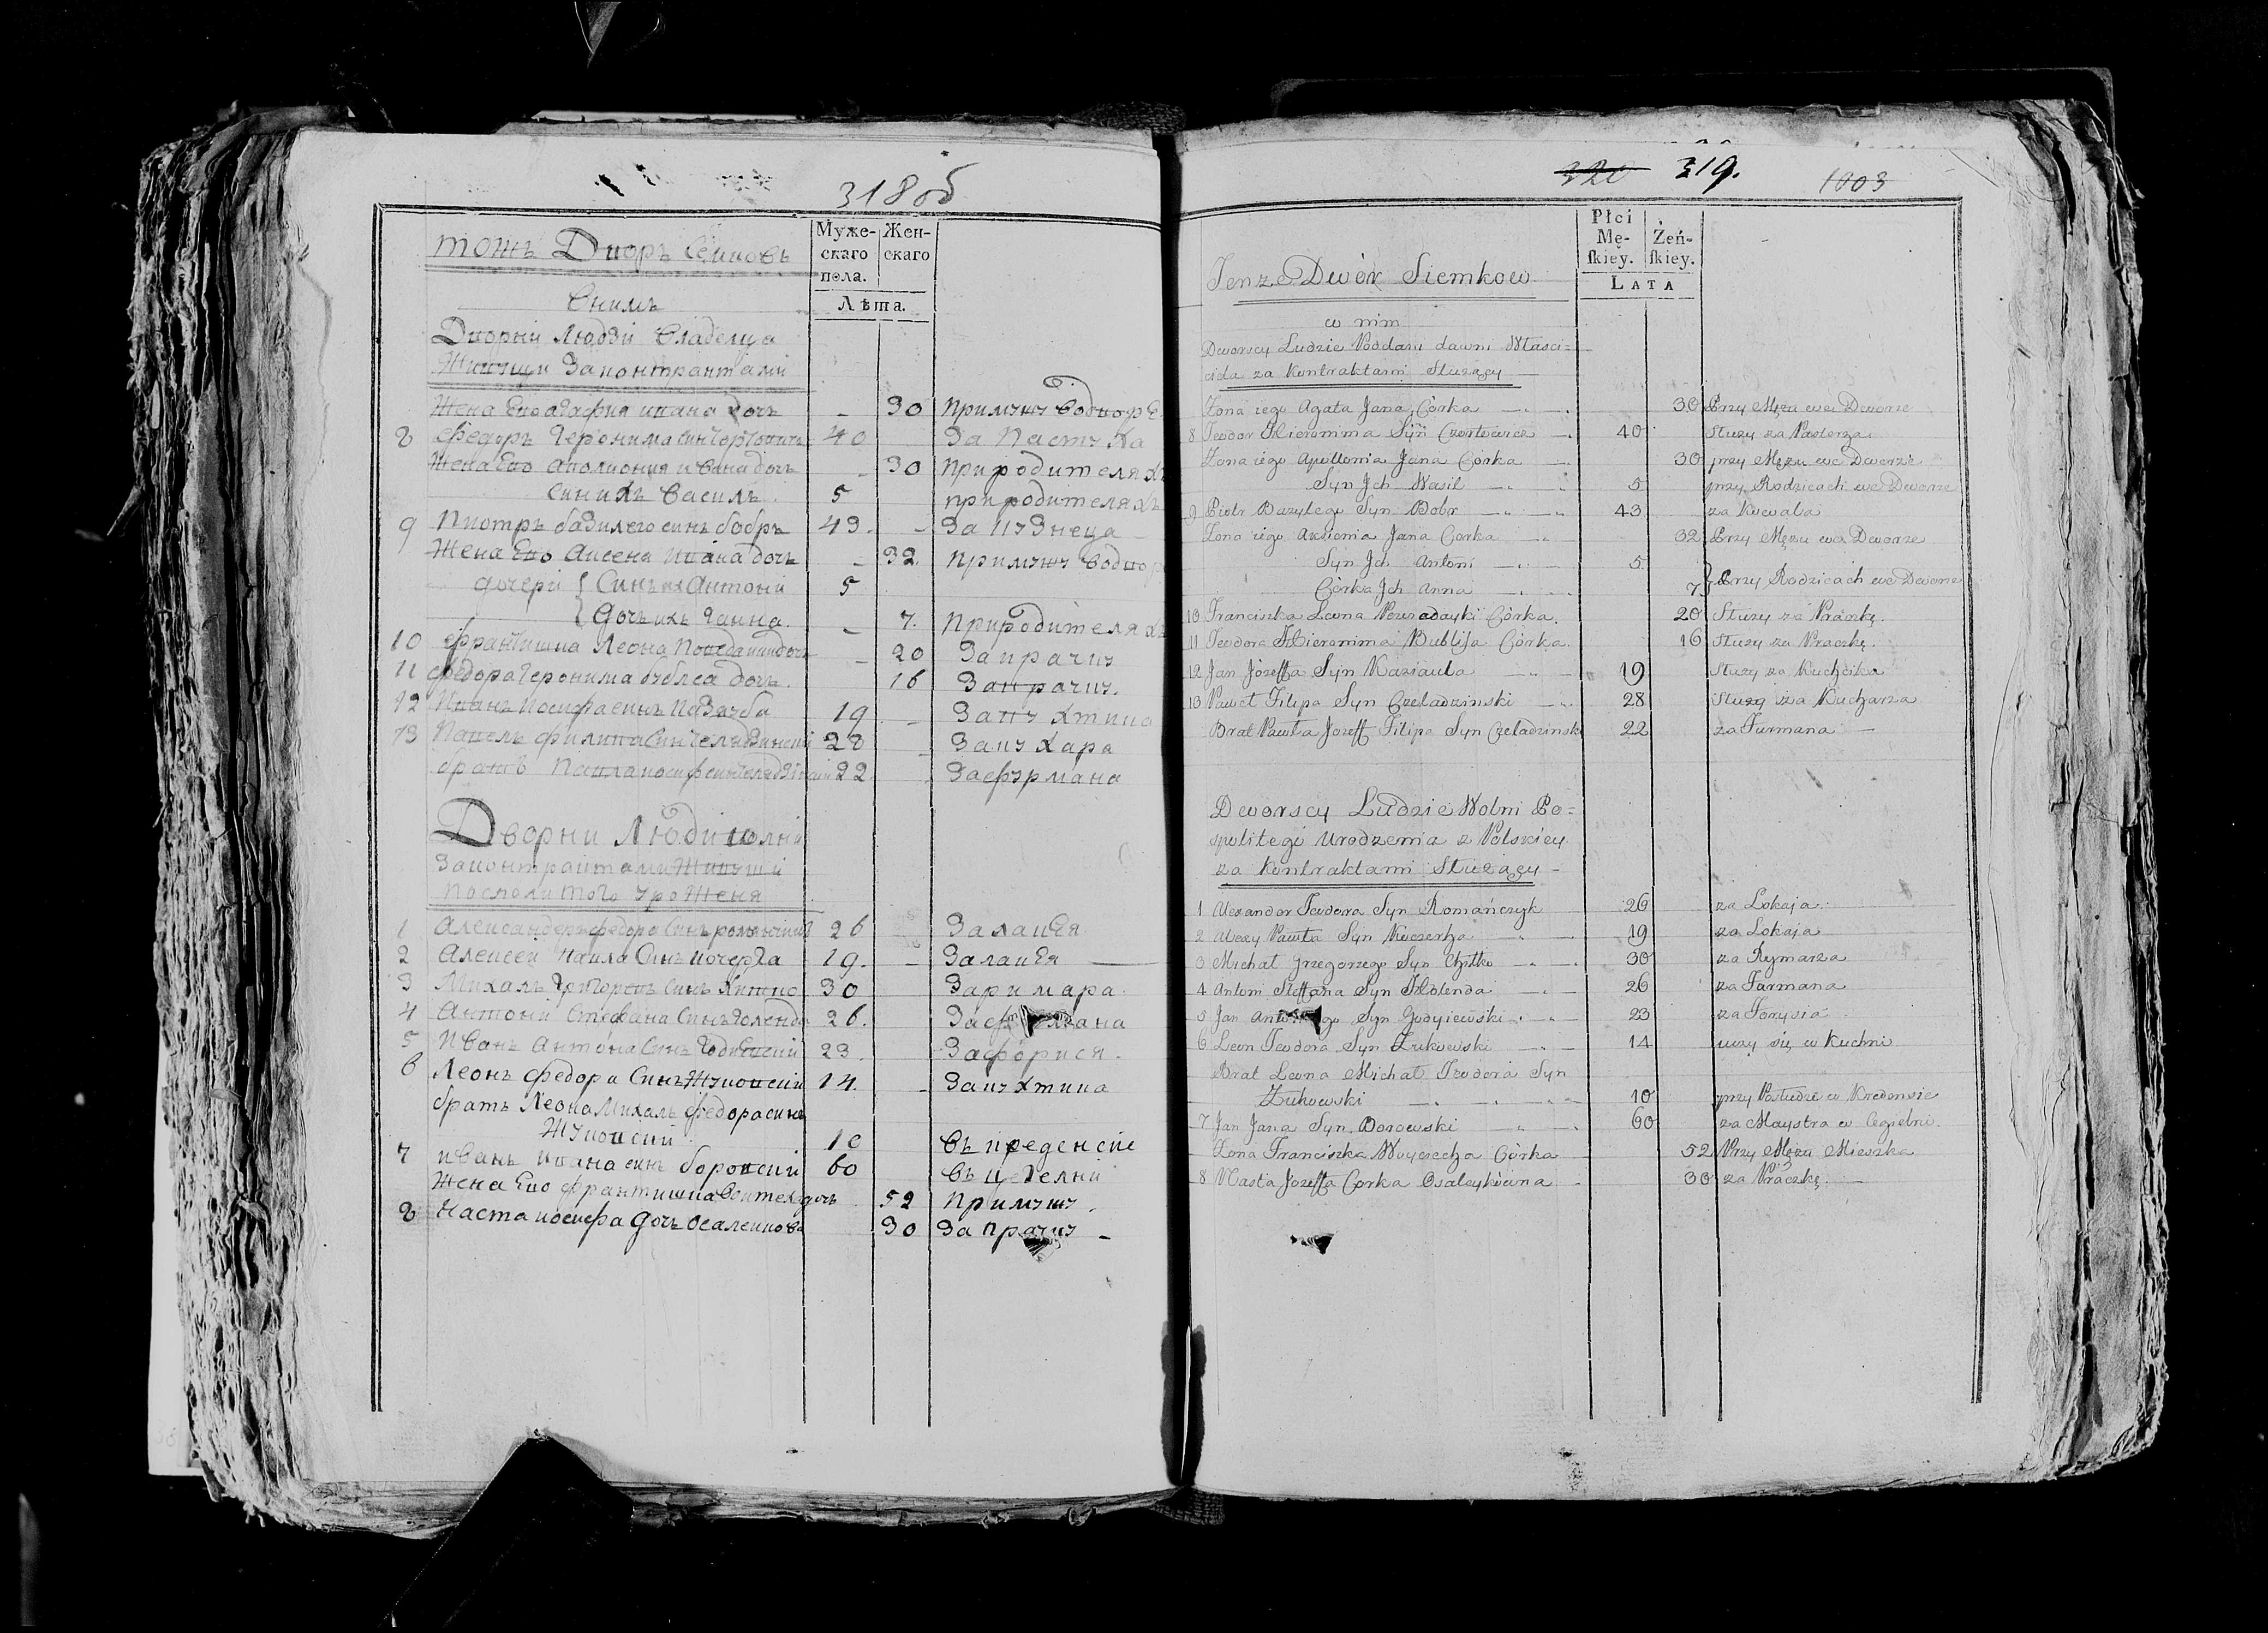 318об
тожъ Дворъ Семковъ
Муже-скаго пола.
Жен-скаго
Лѣта.
Внимъ
Дворни Людзи Владелца
Живущи Законтрактами
Жена Его агафия ивана дочъ - 30 примужу
8 Федоръ Геронима Синъ 40 За Пастуха
Жена Его Аполиония ивана дочъ - 30 при родителяхъ
Синихъ Василъ 5 при родителяхъ
9 Пиотръ базилего синъ бобръ 43. - За кузнеца
Жена Его Аксена Ивана дочъ - 32. Примужу
дочери { Синъ их Антони 5
{ Дочъ ихъ Ганна. - 7. Природителяхъ
10 францишка Леона дочъ - 20 За прачку
11 федора Геронима бублеа дочъ. 16 За прачку.
12 Иванъ иосифа синъ 19 - За кухтика
13 Павелъ филипа Синъ 28 За кухара
братъ Павла иосиф синъ 22 За фурмана
Дворни Люди волни
Законтрактами Живущи
Посполитого уроженя
1 Александеръ федора Синъ 26 За лакея
2 Алексей Павла Синъ кочерга 19. - За лакея
3 Михалъ Синъ 30 За римара.
4 Антони Стефана Синъ Голенда 26. За
5 Иванъ Антона Синъ 23. За форися.
6 Леонъ федора Синъ Жуковски 14. - За кухтика
братъ Леона Михалъ федора синъ
Жуковски 10 въ креденсие
7 иванъ ивана синъ боровски 60 въ
Жена Его францишка дочъ 52 Примужу.
8 Наста иосифа дочъ 30 За прачку
319. 1003
Płci Mę-skiey.
Żeń-skiey.
LATA
Tenze Dwór Siemkow
w nim
Dworscy Ludzie Poddani dawni Własci=
ciela za kontraktami Służący
Zona iego Agata Jana Córka 30 Przy Mężu we Dworze
8 Teodor Hieronima Syn Czortowicz 40 Służy za Pasterza.
Zona iego Apollonia Jana Córka 30 przy Mężu we Dworze
Syn Jch Wasil 5 przy Rodzicach we Dworze
9 Piotr Bazylego Syn Bobr 43 za Kowala
Zona iego Axienia Jana Corka 32 Przy Mężu we Dworze
Syn Jch Antoni 5
Córka Jch Anna 7 } Przy Rodzicach we Dworze
10 Franciszka Leona Córka. 20 Służy za Praczkę.
11 Teodora Hieronima Córka. 16 Służy za Praczkę.
12 Jan Józeffa Syn 19 Służy za Kuchcika
13 Paweł Filipa Syn Czeladzinski 28 Służy za Kucharza
Brat Pawła Jozeff Filipa Syn Czeladzinski 22 za Furmana
Dworscy Ludzie Wolni Po=
spolitego Urodzenia z Polskiey
za kontraktami Służący
1 Alexander Teodora Syn Romańczyk 26 za Lokaja.
2 Alexy Pawła Syn Koczerha 19 za Lokaja
3 Michał Grzegorzego Syn 30 za Rymarza
4 Antoni Steffana Syn Holenda 26 za Furmana
5 Jan Syn Godyiewski 23 za Forysia
6 Leon Teodora Syn Żukowski 14 uczy się w Kuchni
Brat Leona Michał Teodora Syn
Żukowski 10 przy Posłudze w Kredensie
7 Jan Jana Syn Borowski 60 za Maystra w Cegielni.
Zona Franciszka Woyciecha Córka 52 Przy Mężu Mieszka
8 Nasta Jozeffa Corka 30 za Praczkę.